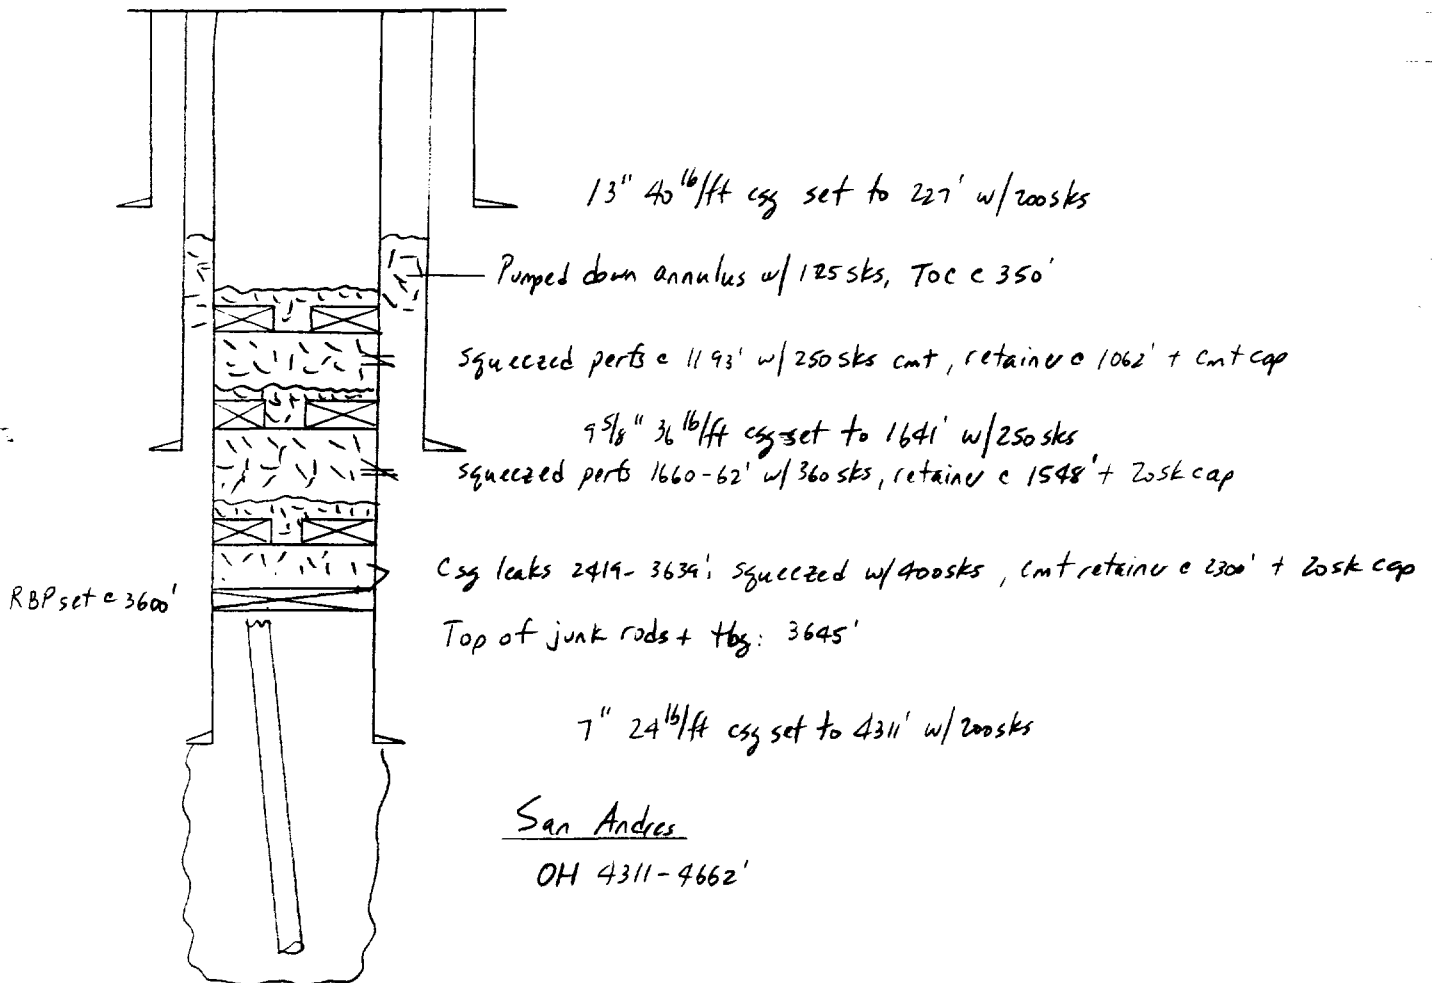 13" 40 lb/ft csg set to 227' w/200sks
Pumped down annulus w/ 125 sks, TOC @ 350'
squeezed perfs @ 1193' w/250 sks cmt, retainer @ 1062' + cmt cap
9 5/8" 36 lb/ft csg set to 1641' w/250 sks
squeezed perfs 1660-62' w/360 sks, retainer @ 1548' + 20sk cap
Csg leaks 2419-3639', squeezed w/400sks, cmt retainer @ 2300' + 20sk cap
RBP set @ 3600'
Top of junk rods + tbg: 3645'
7" 24 lb/ft csg set to 4311' w/200sks
San Andres
OH 4311-4662'